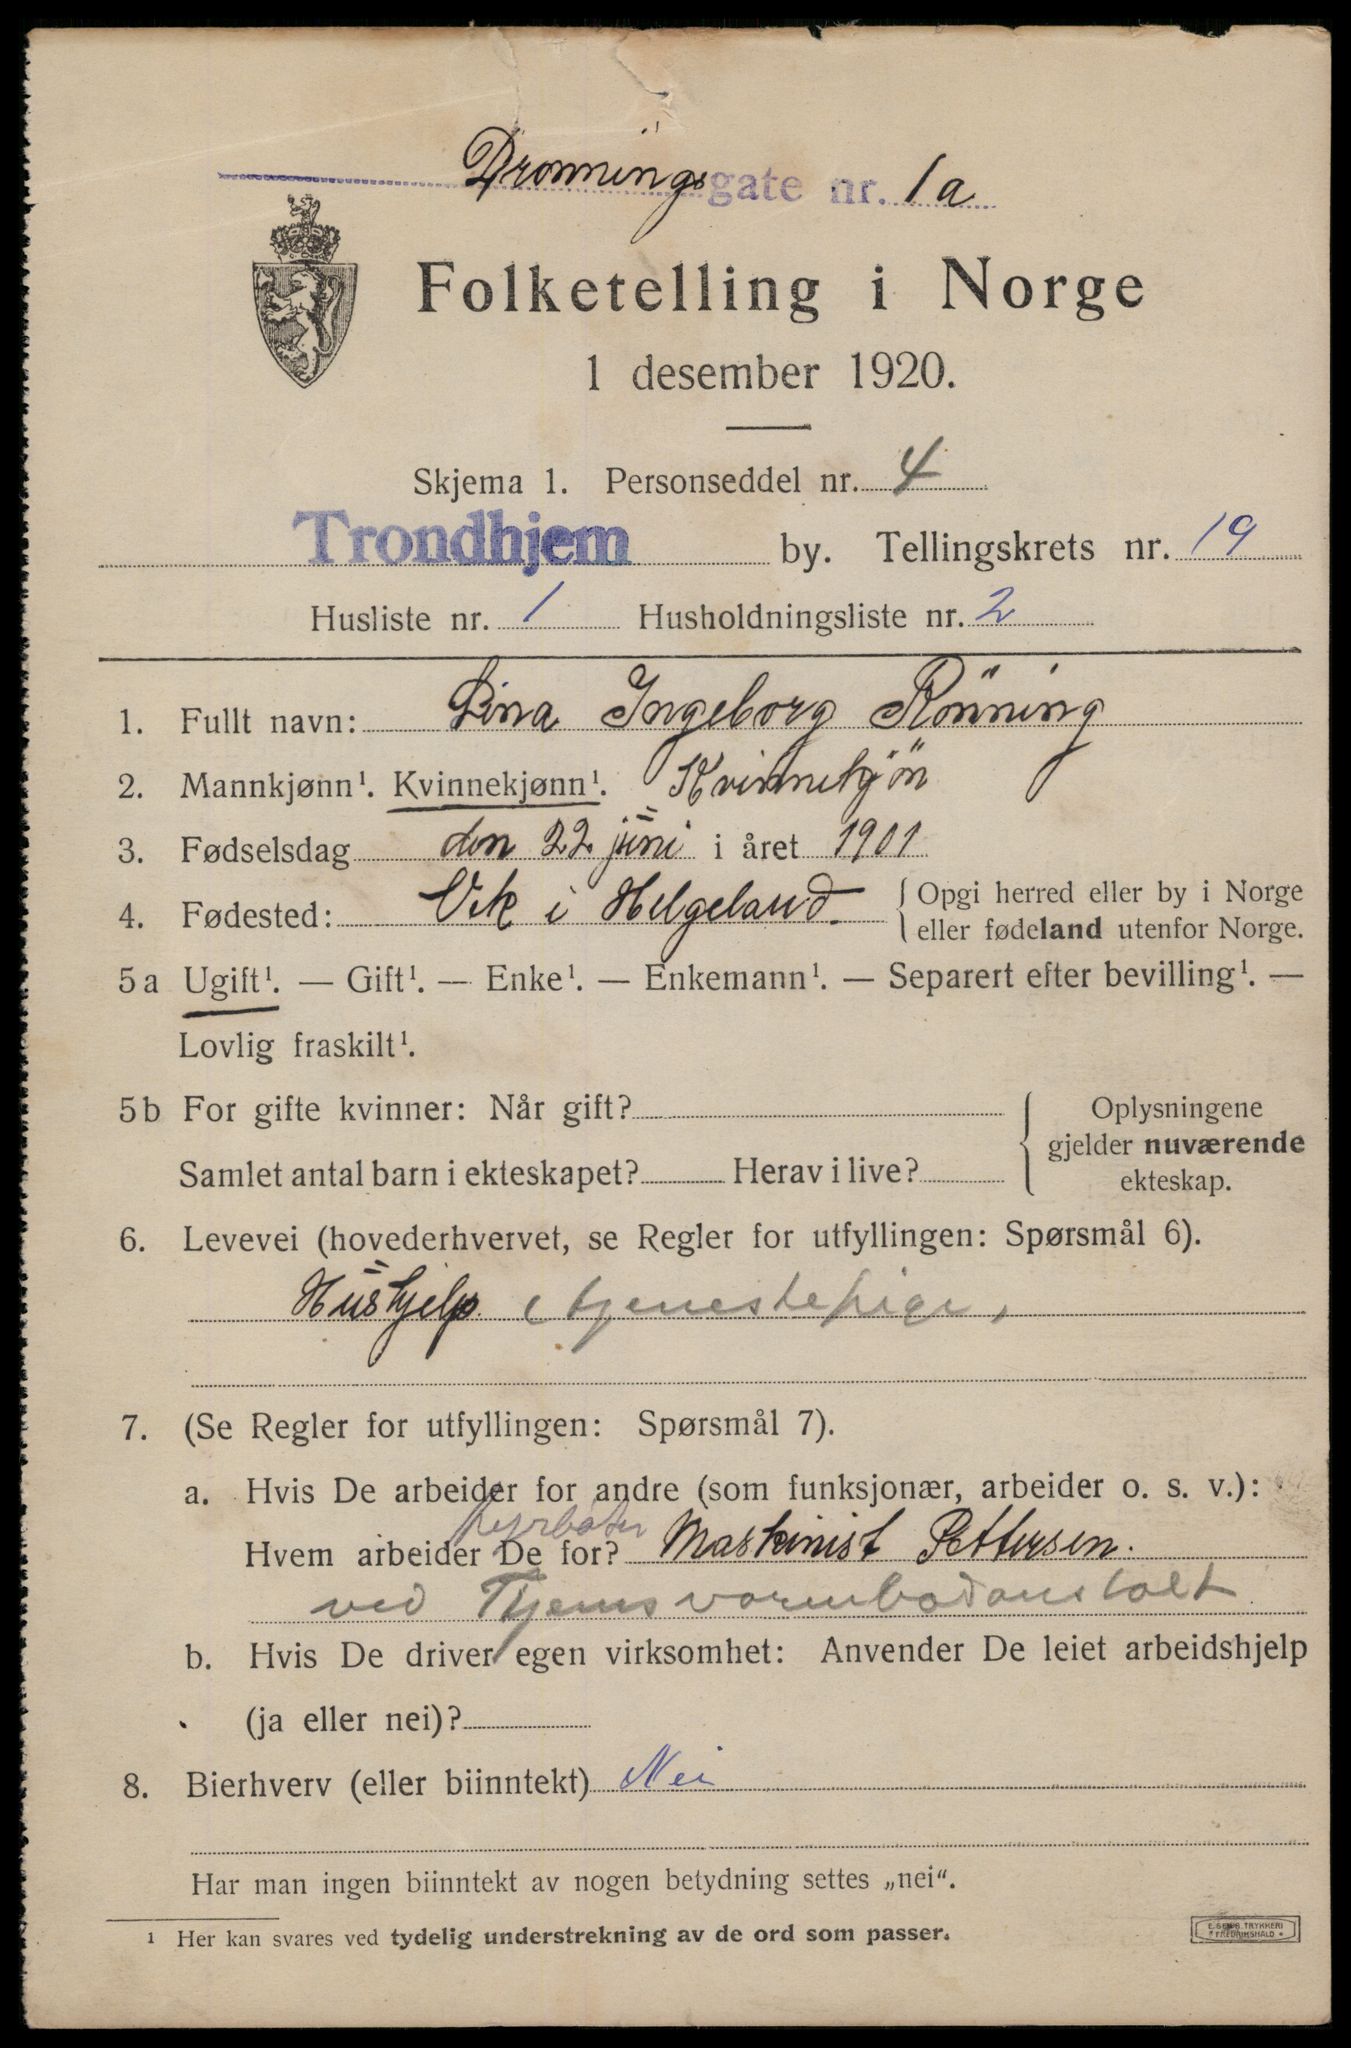 Dronnings gate nr. 1a
Folketelling i Norge
1 desember 1920.
Skjema 1. Personseddel nr. 4
Trondhjem by. Tellingskrets nr. 19
Husliste nr. 1 Husholdningsliste nr. 2
1. Fullt navn: Lina Ingeborg Rönning
2. Mannkjønn¹. Kvinnekjønn¹. Kvinnekjön
3. Fødselsdag den 22 juni i året 1901
4. Fødested: Vik i Helgeland. { Opgi herred eller by i Norge
eller fødeland utenfor Norge.
5a Ugift¹. — Gift¹. — Enke¹. — Enkemann¹. — Separert efter bevilling¹. —
Lovlig fraskilt¹.
5b For gifte kvinner: Når gift? { Oplysningene
gjelder nuværende
Samlet antal barn i ekteskapet? Herav i live? ekteskap.
6. Levevei (hovederhvervet, se Regler for utfyllingen: Spørsmål 6).
Hushjelp (tjenestepige,
7. (Se Regler for utfyllingen: Spørsmål 7).
a. Hvis De arbeider for andre (som funksjonær, arbeider o. s. v.):
fyrbøter
Hvem arbeider De for? Maskinist Pettersen.
ved Tjems varmbadanstalt
b. Hvis De driver egen virksomhet: Anvender De leiet arbeidshjelp
(ja eller nei)?
8. Bierhverv (eller biinntekt) Nei
Har man ingen biinntekt av nogen betydning settes „nei“.
¹ Her kan svares ved tydelig understrekning av de ord som passer.